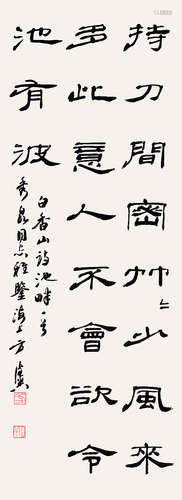 持刀間密竹〻少風來
多此意人不會欲令
池有波
白香山詩池畔一首
秀泉同志雅鑒海上方